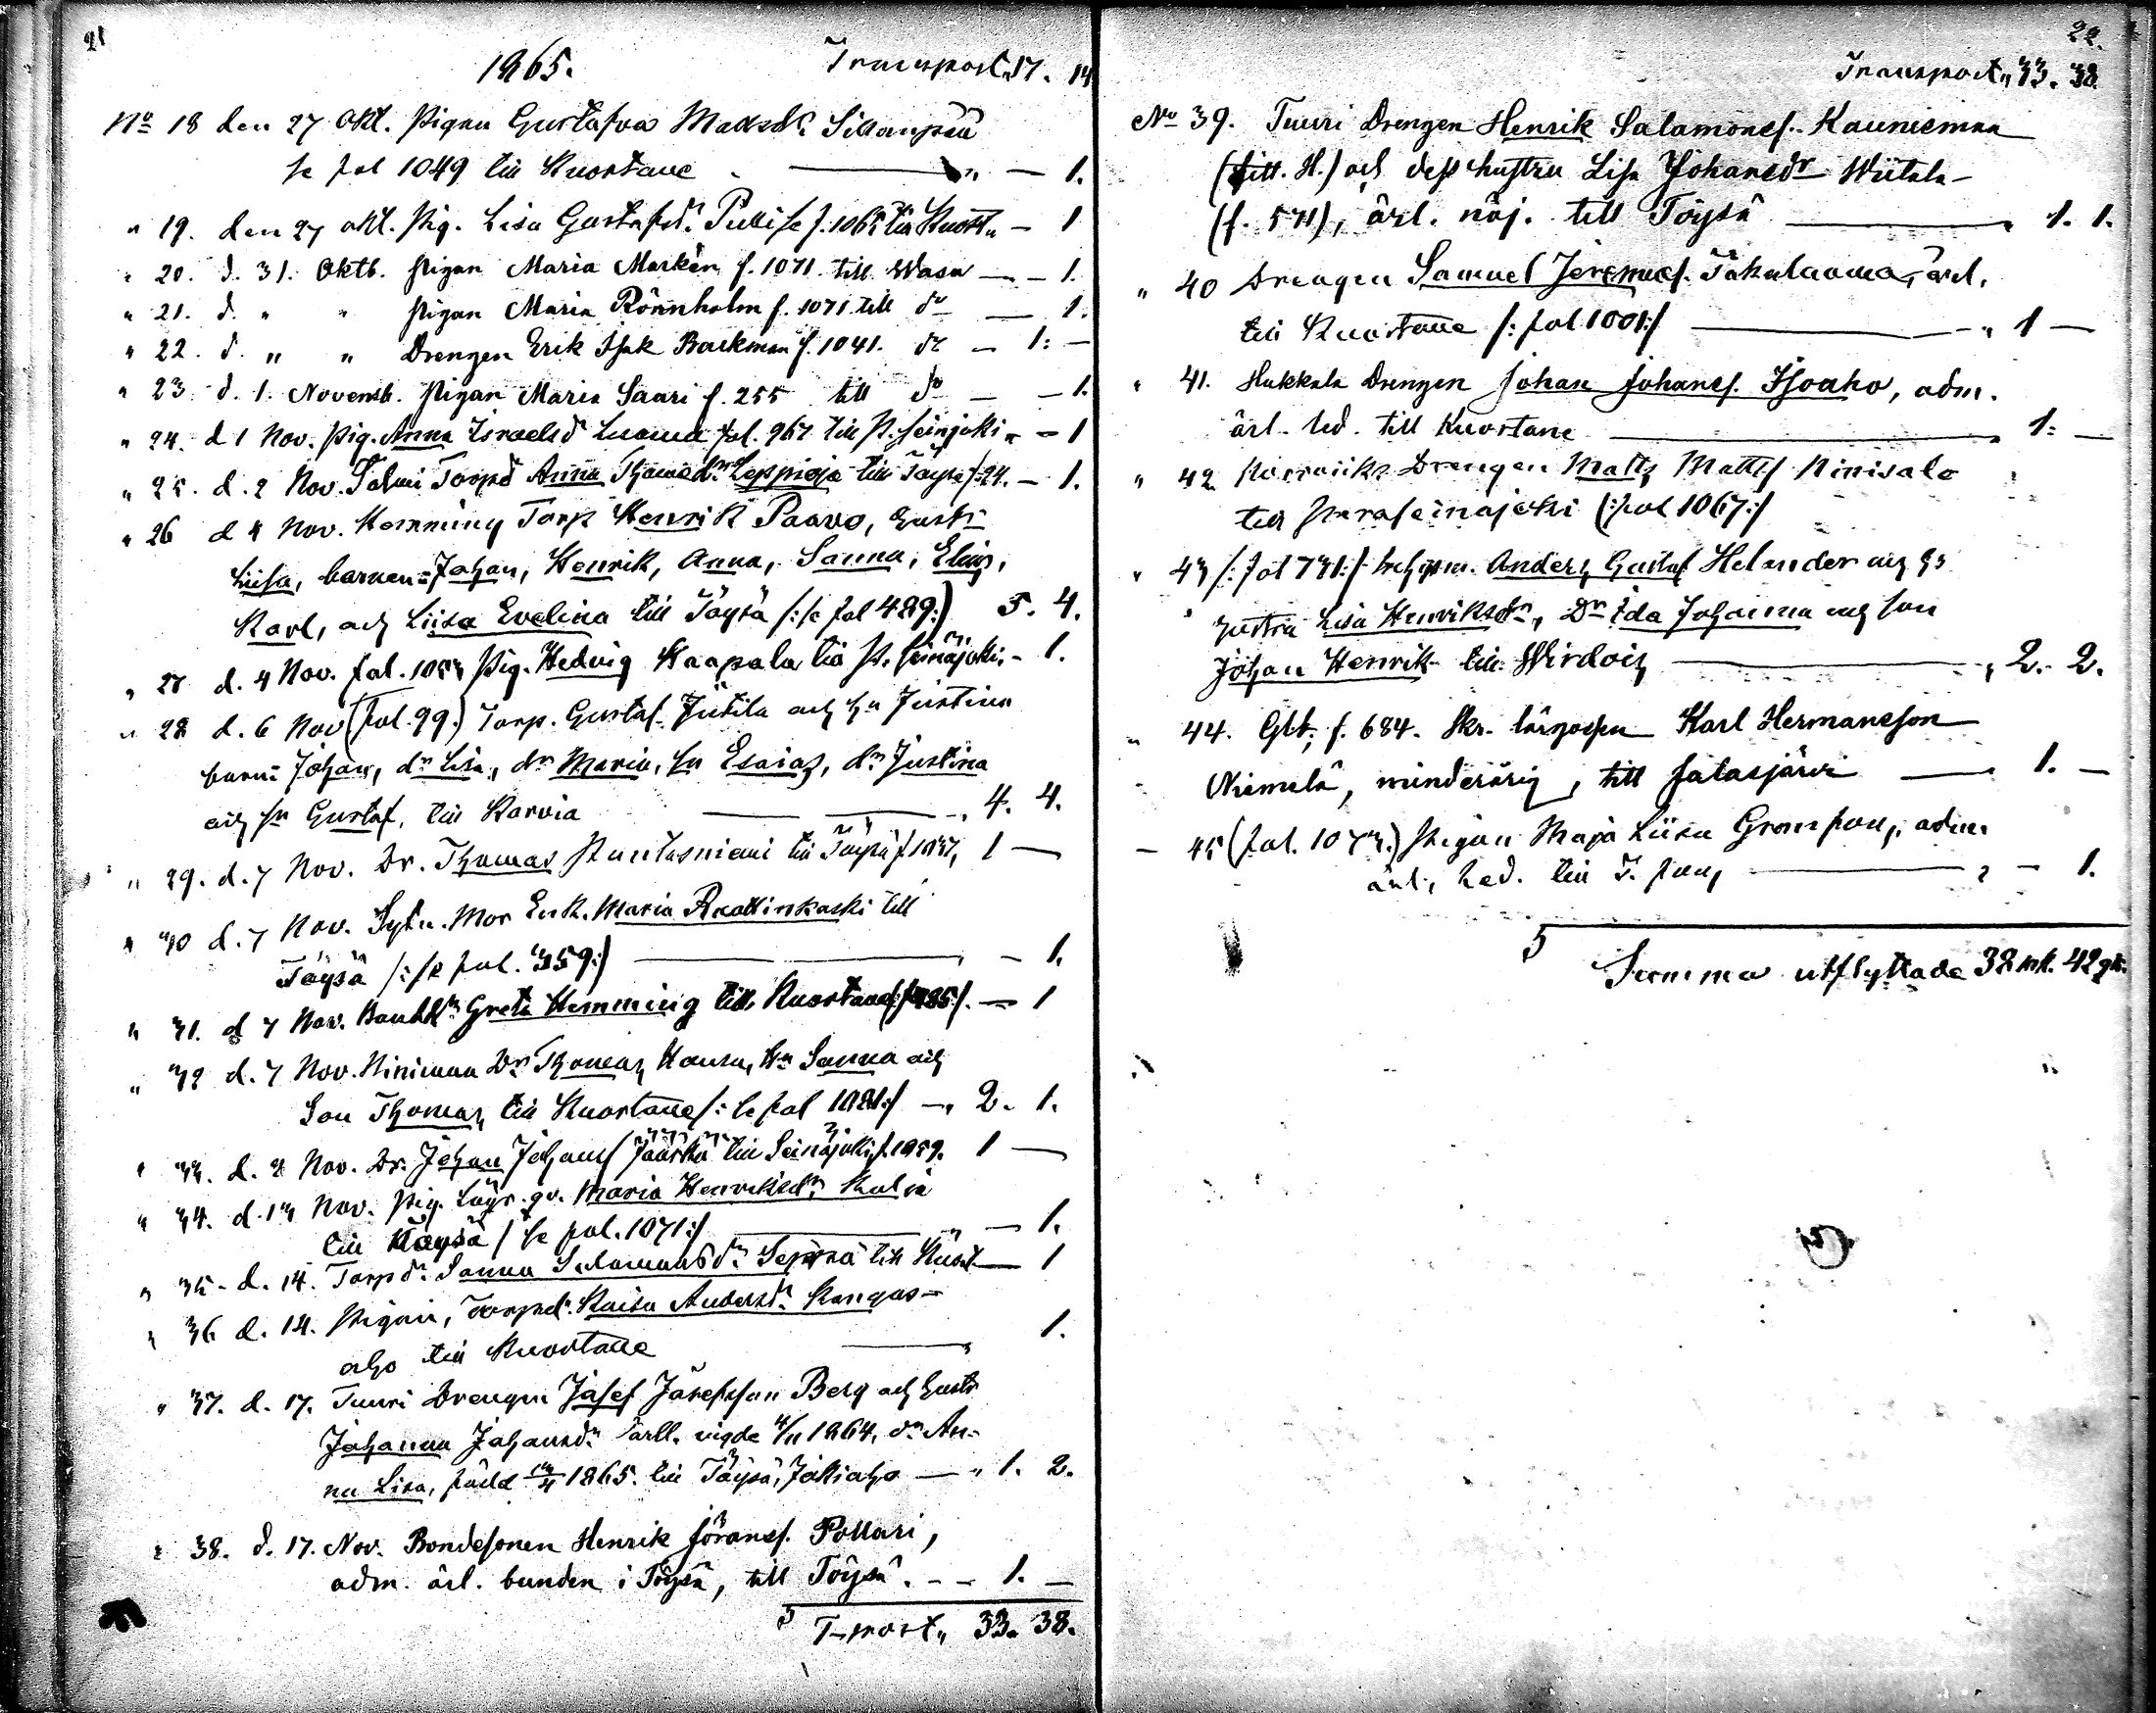 21
1865. Transport „ 17. 14
No 18 den 27 Okt. Pigan Gustafva Matsdr Sillanpää
se fol 1049 till Kuortane „ — 1.
„ 19. den 27 okt. Pig. Lisa Gustafsdr. se f. 1065 till Kuort„ — 1
„ 20. d. 31. Oktb. Pigan Maria Markén f. 1071 till Wasa — — 1.
„ 21. d. „ „ Pigan Maria Rönnholm f. 1071 till do — 1.
„ 22. d. „ „ Drengen Erik Isak Backman f. 1041. do — 1: —
„ 23 d. 1. Novemb. Pigan Maria Saari f. 255 till do — — 1.
„ 24. d 1 Nov. Pig. Anna Israelsdr Luoma fol. 967 till P. Seinjoki „ — 1
„ 25. d. 2 Nov. Salmi Torpdr Anna Thomasdr Leppioja till Töysä f. 24. — 1.
„ 26 d 4 Nov. Hemming Torp Henrik Paavo, hustr
Liisa, barnen = Johan, Henrik, Anna, Sanna, Elias,
Karl, och Liisa Evelina till Töysä /: se fol 489:) 5. 4.
„ 27 d. 4 Nov. fol. 1053 Pig. Hedvig Haapala till P. Seinäjoki. — 1.
„ 28 d. 6 Nov (fol. 99.) Torp. Gustaf Jutila och h. Justina
barn: Johan, dr Lisa, dr Maria, sn Esaias, dr Justina
och sn Gustaf, till Karvia — — „ 4. 4.
„ 29. d. 7 Nov. Dr. Thomas Puntasniemi till Töysä f. 1037, 1 —
„ 30 d. 7 Nov. Sytn. Mor Enk. Maria till
Töysä /: se fol. 359:) — — 1.
„ 31. d 7 Nov. Bonddr Greta Hemming till Kuortane (f. 485/. — 1
„ 32 d. 7 Nov. Niniman Dr Thomas, Hu Sanna och
Son Thomas, till Kuortane /: se fol 1021:/ — „ 2. 1.
„ 33. d. 8 Nov. Dr. Johan Johansf Jääskä till Seinäjoki, f. 1059. 1 —
„ 34. d. 13 Nov. Pig. Maria Henriksdr
till Töysä / se fol. 1071:/ — 1.
„ 35. d. 14. Torpdr. Sanna Salomonsdr Seppä till Kuort. — 1
„ 36 d. 14. Pigan, Torpdr. Kaisa Andersdr Kangas-
aho till Kuortane — „ 1.
„ 37. d. 17. Tuuri Drengen Josef Josefsson Berg och hustr
Johanna Johansdr ärll. vigde 4/11 1864, dr An-
na Lisa, född 1865. till Töysä, Jokiaho — „ 1. 2.
„ 38. d. 17. Nov. Bondesonen Henrik Göransf. Pollari,
adm. ärl. bunden i Töysä, till Töysä. — — 1. —
T-port „ 33. 38.
22.
Transport „ 33. 38.
No 39. Tuuri Drengen Henrik Salamonsf. Kauniemaa
(Litt. H.) och dess hustru Lisa Johansdr Wiitala
(f. 571), ärl. näj. till Töysä — „ 1. 1.
„ 40 Drengen Samuel Jeremiasf. Jäkulaoma, ärl.
till Kuortane /: fol 1001:/ — „ 1 —
„ 41. Hukkala Drengen Johan Johansf. Isoaho, adm.
ärl. led. till Kuortane — „ 1: —
„ 42 Drengen Matts Mattsf Kinisalo
till Peraseinäjoki (: fol 1067:/
„ 43 /: fol 731:/ Anders Gustaf Helander och hs
hustru Lisa Henriksdr, Dr Ida Johanna och son
Johan Henrik till Wirdois — „ 2. 2.
„ 44. Ght. f. 684. Skr. lärgossen Karl Hermansson
Niemelä, minderårig, till Jalasjärvi — 1. —
— 45 (fol. 1073.) Pigan Maja Liisa adm.
ärl., led. till — „ — 1.
Summa utflyttade 38 mk. 42 qk.